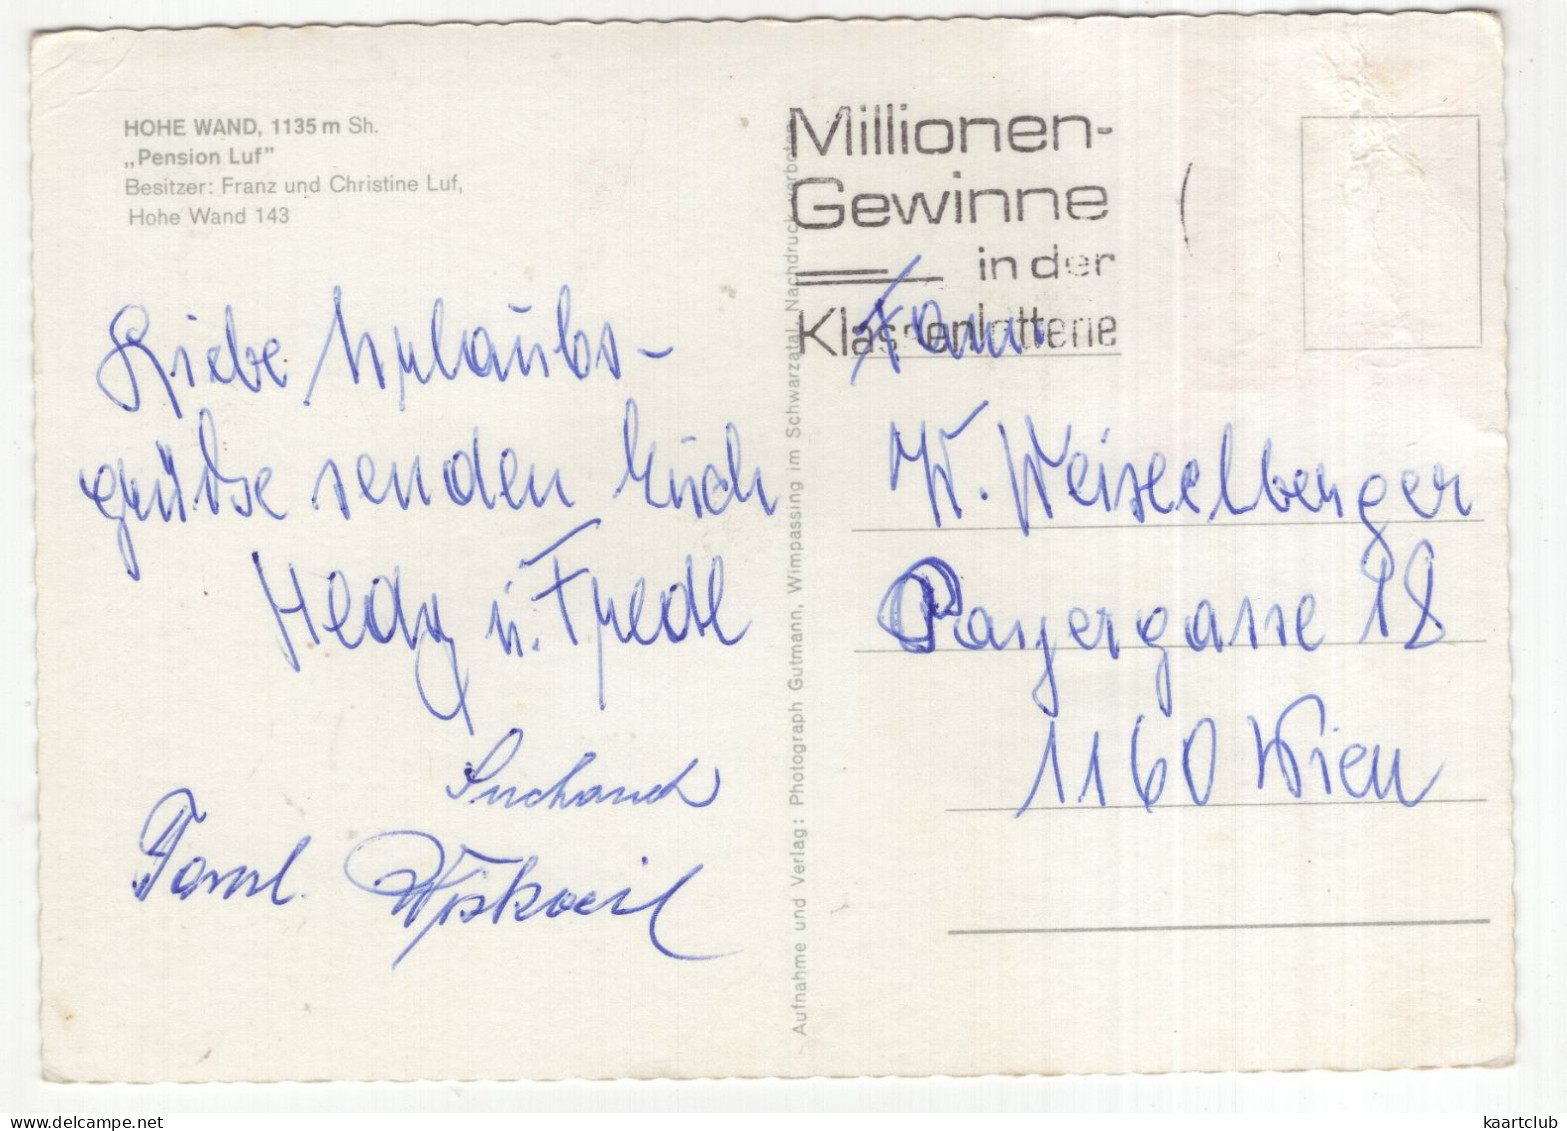 HOHE WAND, 1135 m Sh.
„Pension Luf"
Besitzer: Franz und Christine Luf,
Hohe Wand 143
Liebe Urlaubs-
grüße senden Euch
Hedy u. Fredl
Suchanek
Faml.
Aufnahme und Verlag: Photograph Gutmann, Wimpassing im Schwarzatal. Nachdruck verboten
Millionen-
Gewinne
in der
Klassenlotterie
Fam.
W. Weiselberger
Payergasse 18
1160 Wien
kaartclub
www.delcampe.net